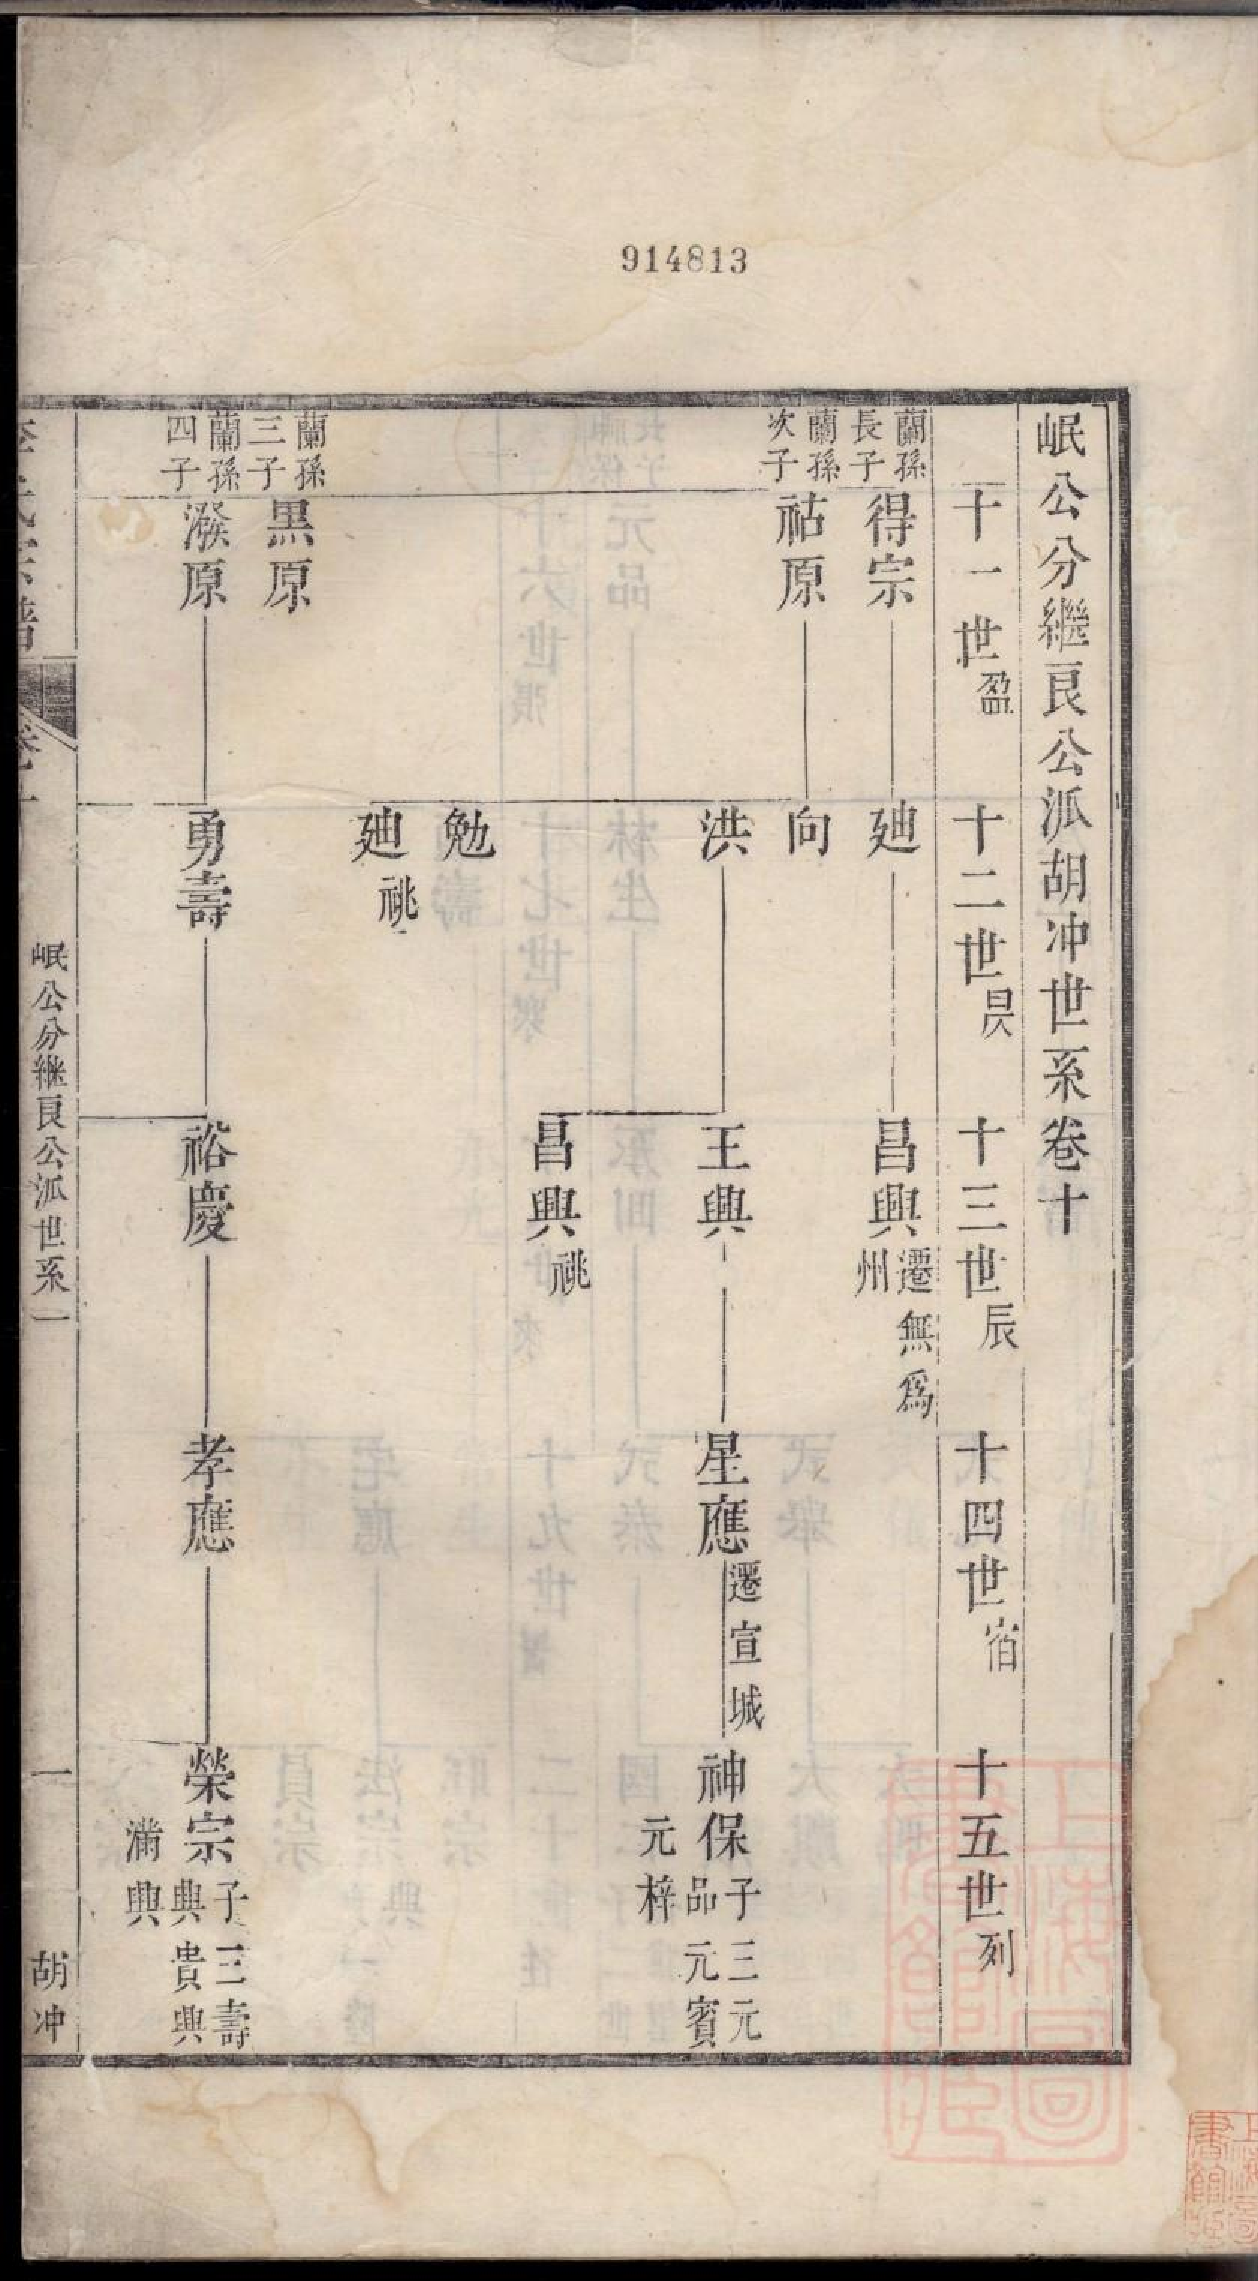 914813
岷公分繼良公派胡冲世系卷十
十一世盈
十二世昃
十三世辰
十四世宿
十五世列
蘭孫長子
得宗
廸
昌興遷無爲州
蘭孫次子
祜原
向
洪
王興
星應遷宣城
神保子三元品元賓元梓
昌興祧
勉
廸祧
蘭孫三子
黒原
蘭孫四子
潑原
勇壽
裕慶
孝應
榮宗子三壽典貴典滿典
岷公分継良公派世系一
一
胡冲
上海圖書館藏